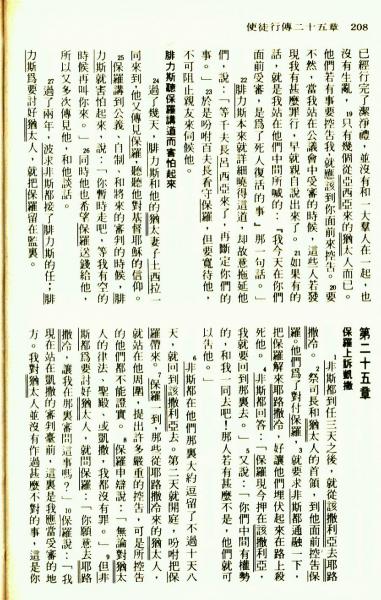 使徒行傳二十五章 208
已經行完了潔淨禮，並沒有和一大羣人在一起，也
沒有生亂，19只有幾個從亞西亞來的猶太人而已。
他們若有事要控告我，就應該到你面前來控告。20要
不然，當我站在公議會中受審的時候，這些人若發
現我有甚麼罪行，早就親自說出來了。21如果有的
話，就是我站在他們中間所喊的：『我今天在你們
面前受審，是爲了死人復活的事』那一句話。」
22腓力斯本來就詳細曉得這道，却故意拖延他
們，說：「等千夫長呂西亞來了，再斷定你們的
事。」23於是吩咐百夫長看守保羅，但要寬待他，
不可阻止親友來伺候他。
腓力斯聽保羅講道而害怕起來
24過了幾天，腓力斯和他的猶太妻子土西拉一
同來到，他又傳見保羅，聽聽他對基督耶穌的信仰。
25保羅講到公義、自制、和將來的審判的時候，腓
力斯就害怕起來，說：「你暫時走吧，等我有空的
時候再叫你來。」26同時他也希望保羅送錢給他，
所以又多次傳見他，和他談話。
27過了兩年，波求非斯都接了腓力斯的任；腓
力斯爲要討好猶太人，就把保羅留在監裏。
第二十五章
保羅上訴凱撒
1非斯都到任三天之後，就從該撒利亞去耶路
撒冷。2祭司長和猶太人的首領，到他面前控告保
羅。他們爲了對付保羅3就要求非斯都通融一下，
把保羅解來耶路撒冷，好讓他們埋伏起來在路上殺
死他。4非斯都回答：「保羅現今押在該撒利亞，
我就要回到那裏去。」5又說：「你們中間有權勢
的，和我一同去吧！那人若有甚麼不是，他們就可
以告他。」
6非斯都在他們那裏大約逗留了不過十天八
天，就回到該撒利亞去。第二天就開庭，吩咐把保
羅帶來。7保羅一到，那些從耶路撒冷來的猶太人，
就站在他周圍，提出許多嚴重的控告，可是所控告
的他們都不能證實。8保羅申辯說：「無論對猶太
人的律法、聖殿、或凱撒，我都沒有罪。」9但非
斯都爲要討好猶太人，就問保羅：「你願意去耶路
撒冷，讓我在那裏審問這事嗎？」10保羅說：「我
現在站在凱撒的審判臺前，這裏是我應當受審的地
方。我對猶太人並沒有作過甚麼不對的事，這是你